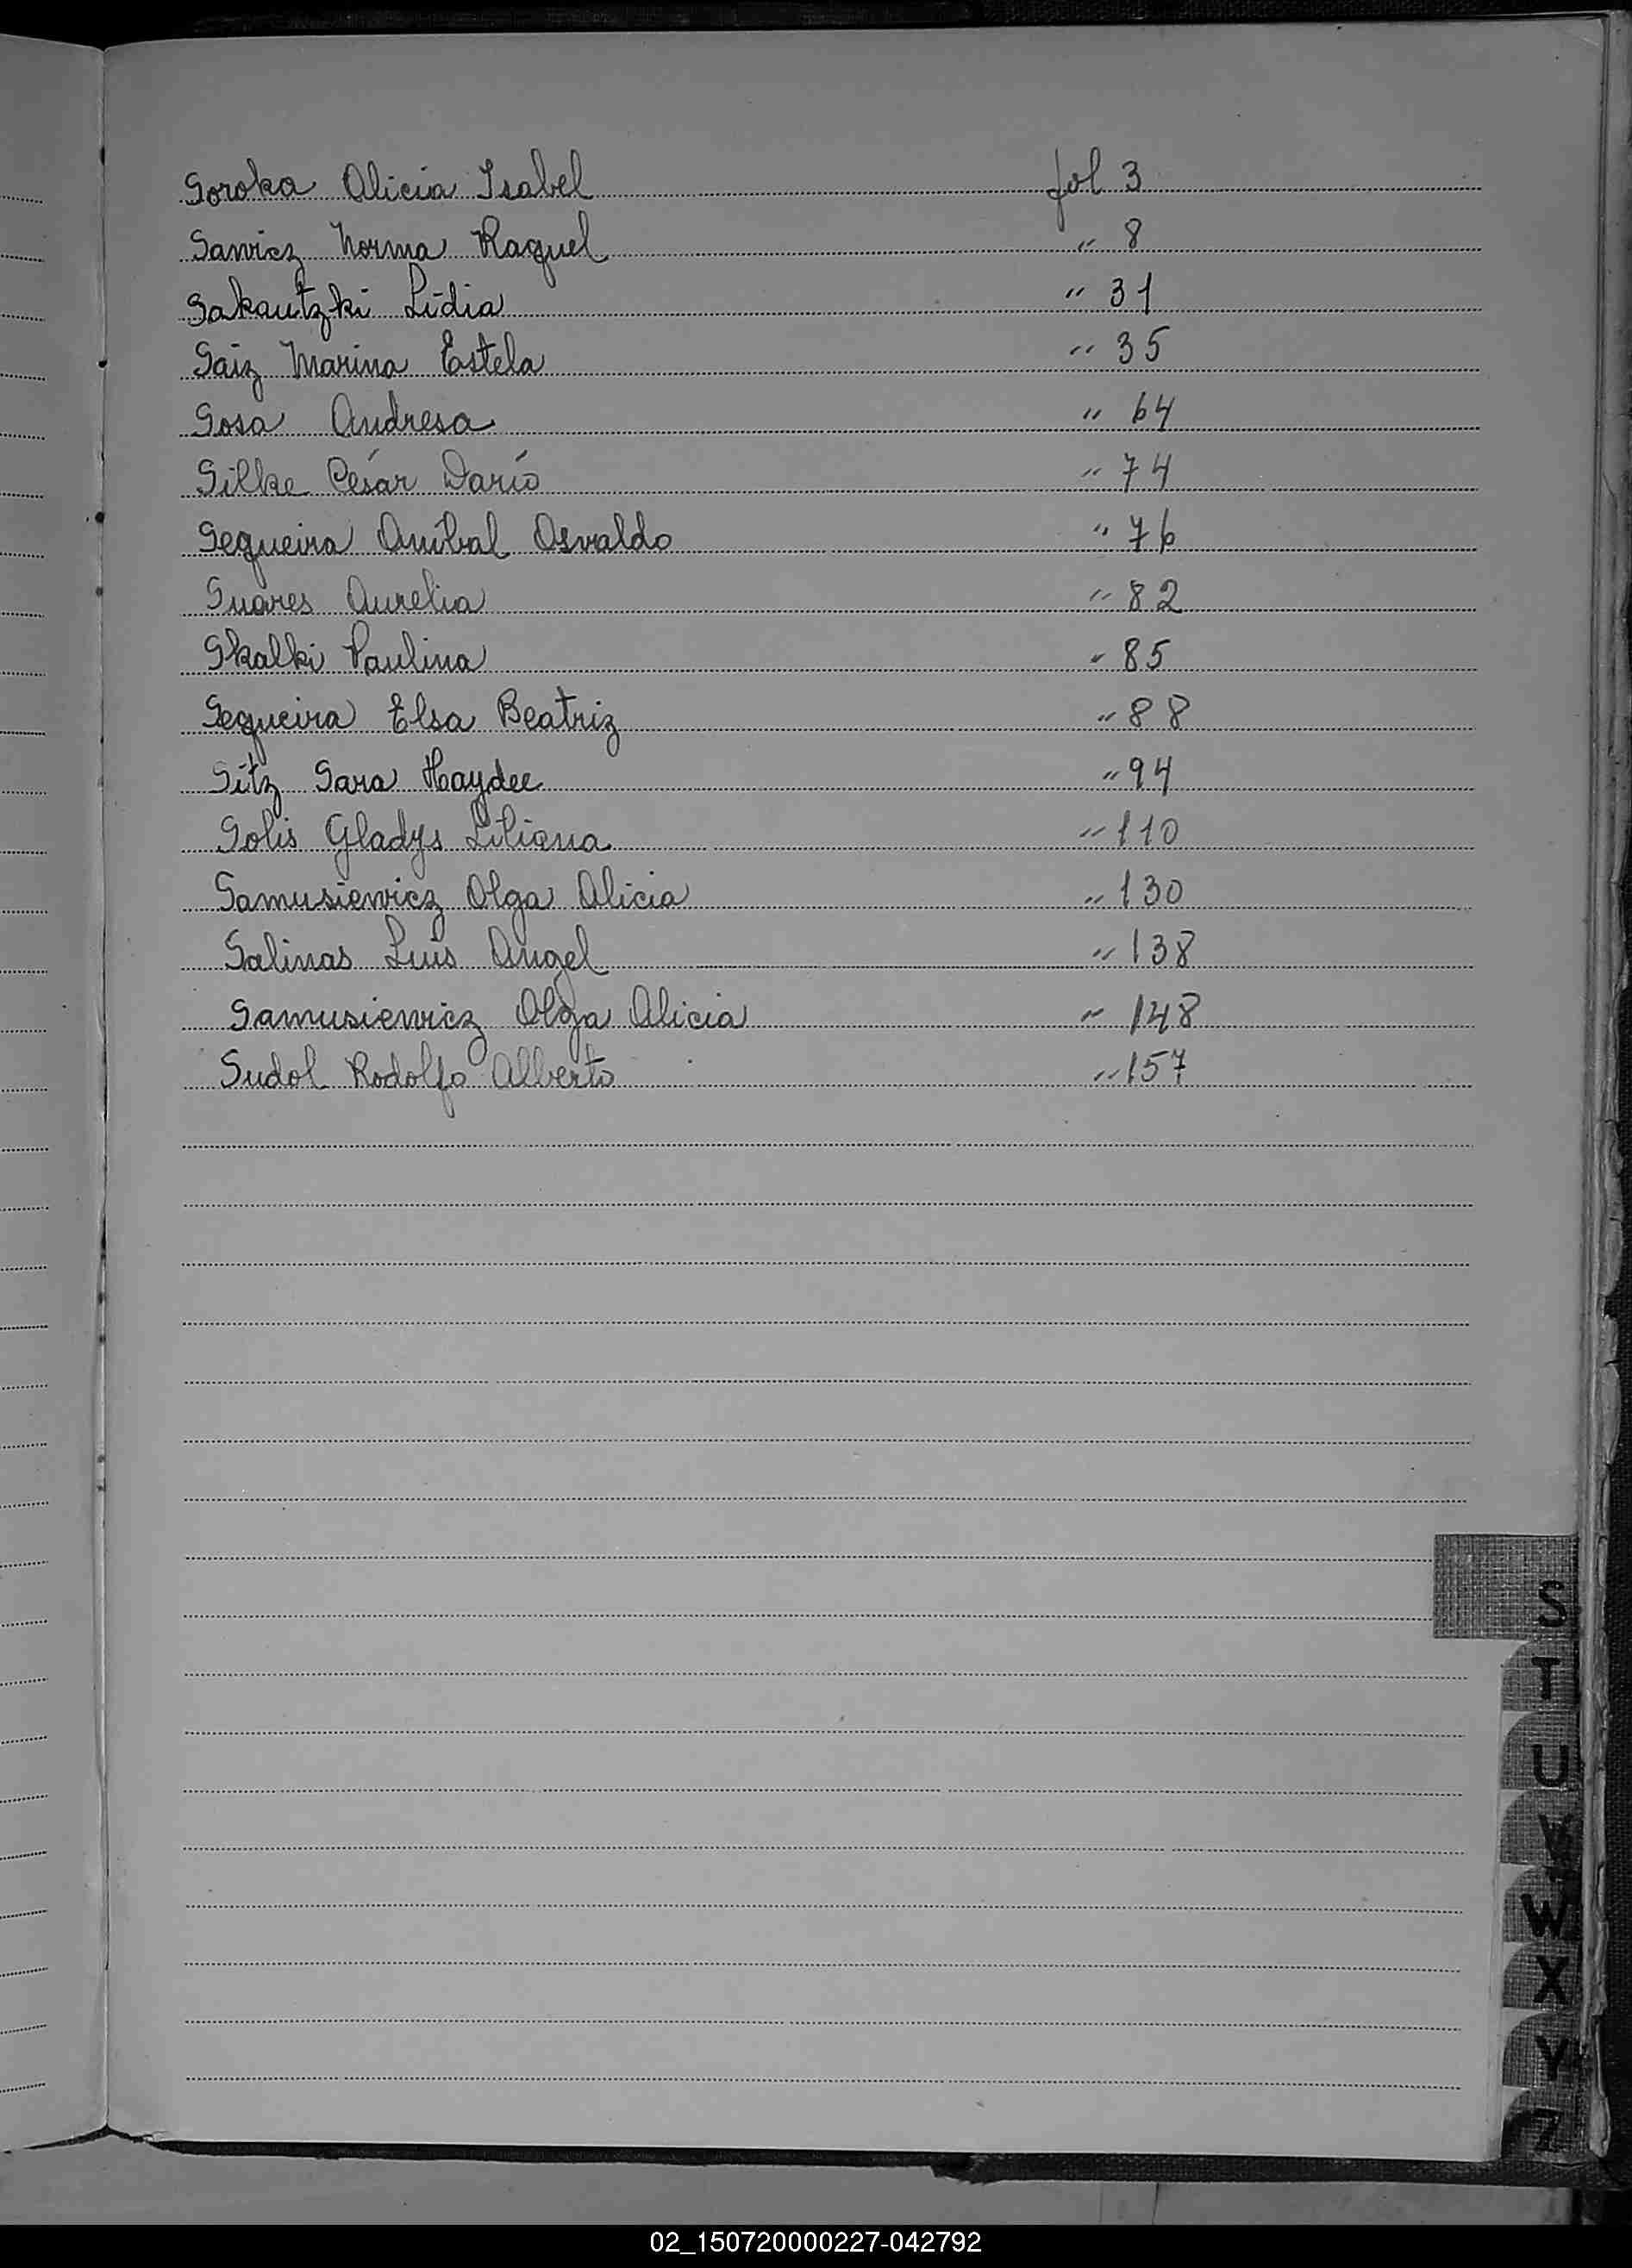 Soroka Alicia Isabel fol 3
Sawicz Norma Raquel " 8
Sakautzki Lidia " 31
Saiz Marina Estela " 35
Sosa Andresa " 64
Silke César Darío " 74
Sequeira Anibal Osvaldo " 76
Suares Aurelia " 82
Skalki Paulina " 85
Sequeira Elsa Beatriz " 88
Sitz Sara Haydee " 94
Solis Gladys Liliana " 110
Samusiewicz Olga Alicia " 130
Salinas Luis Angel " 138
Samusiewicz Olga Alicia " 148
Sudol Rodolfo Alberto " 157
S
T
U
V
W
X
Y
Z
02_150720000227-042792